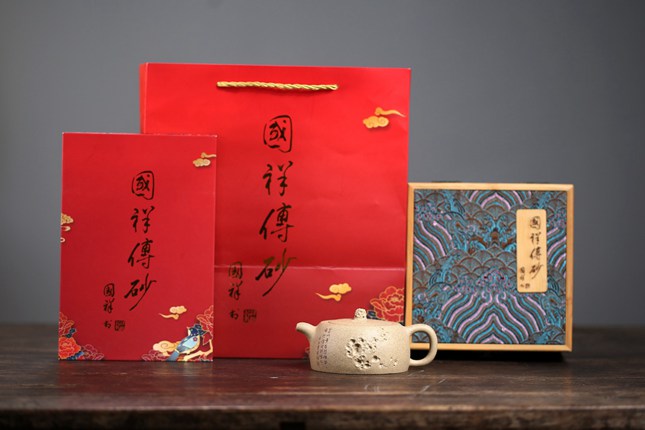 國祥傳砂
國祥書
國祥傳砂
國祥書
國祥傳砂
國祥書